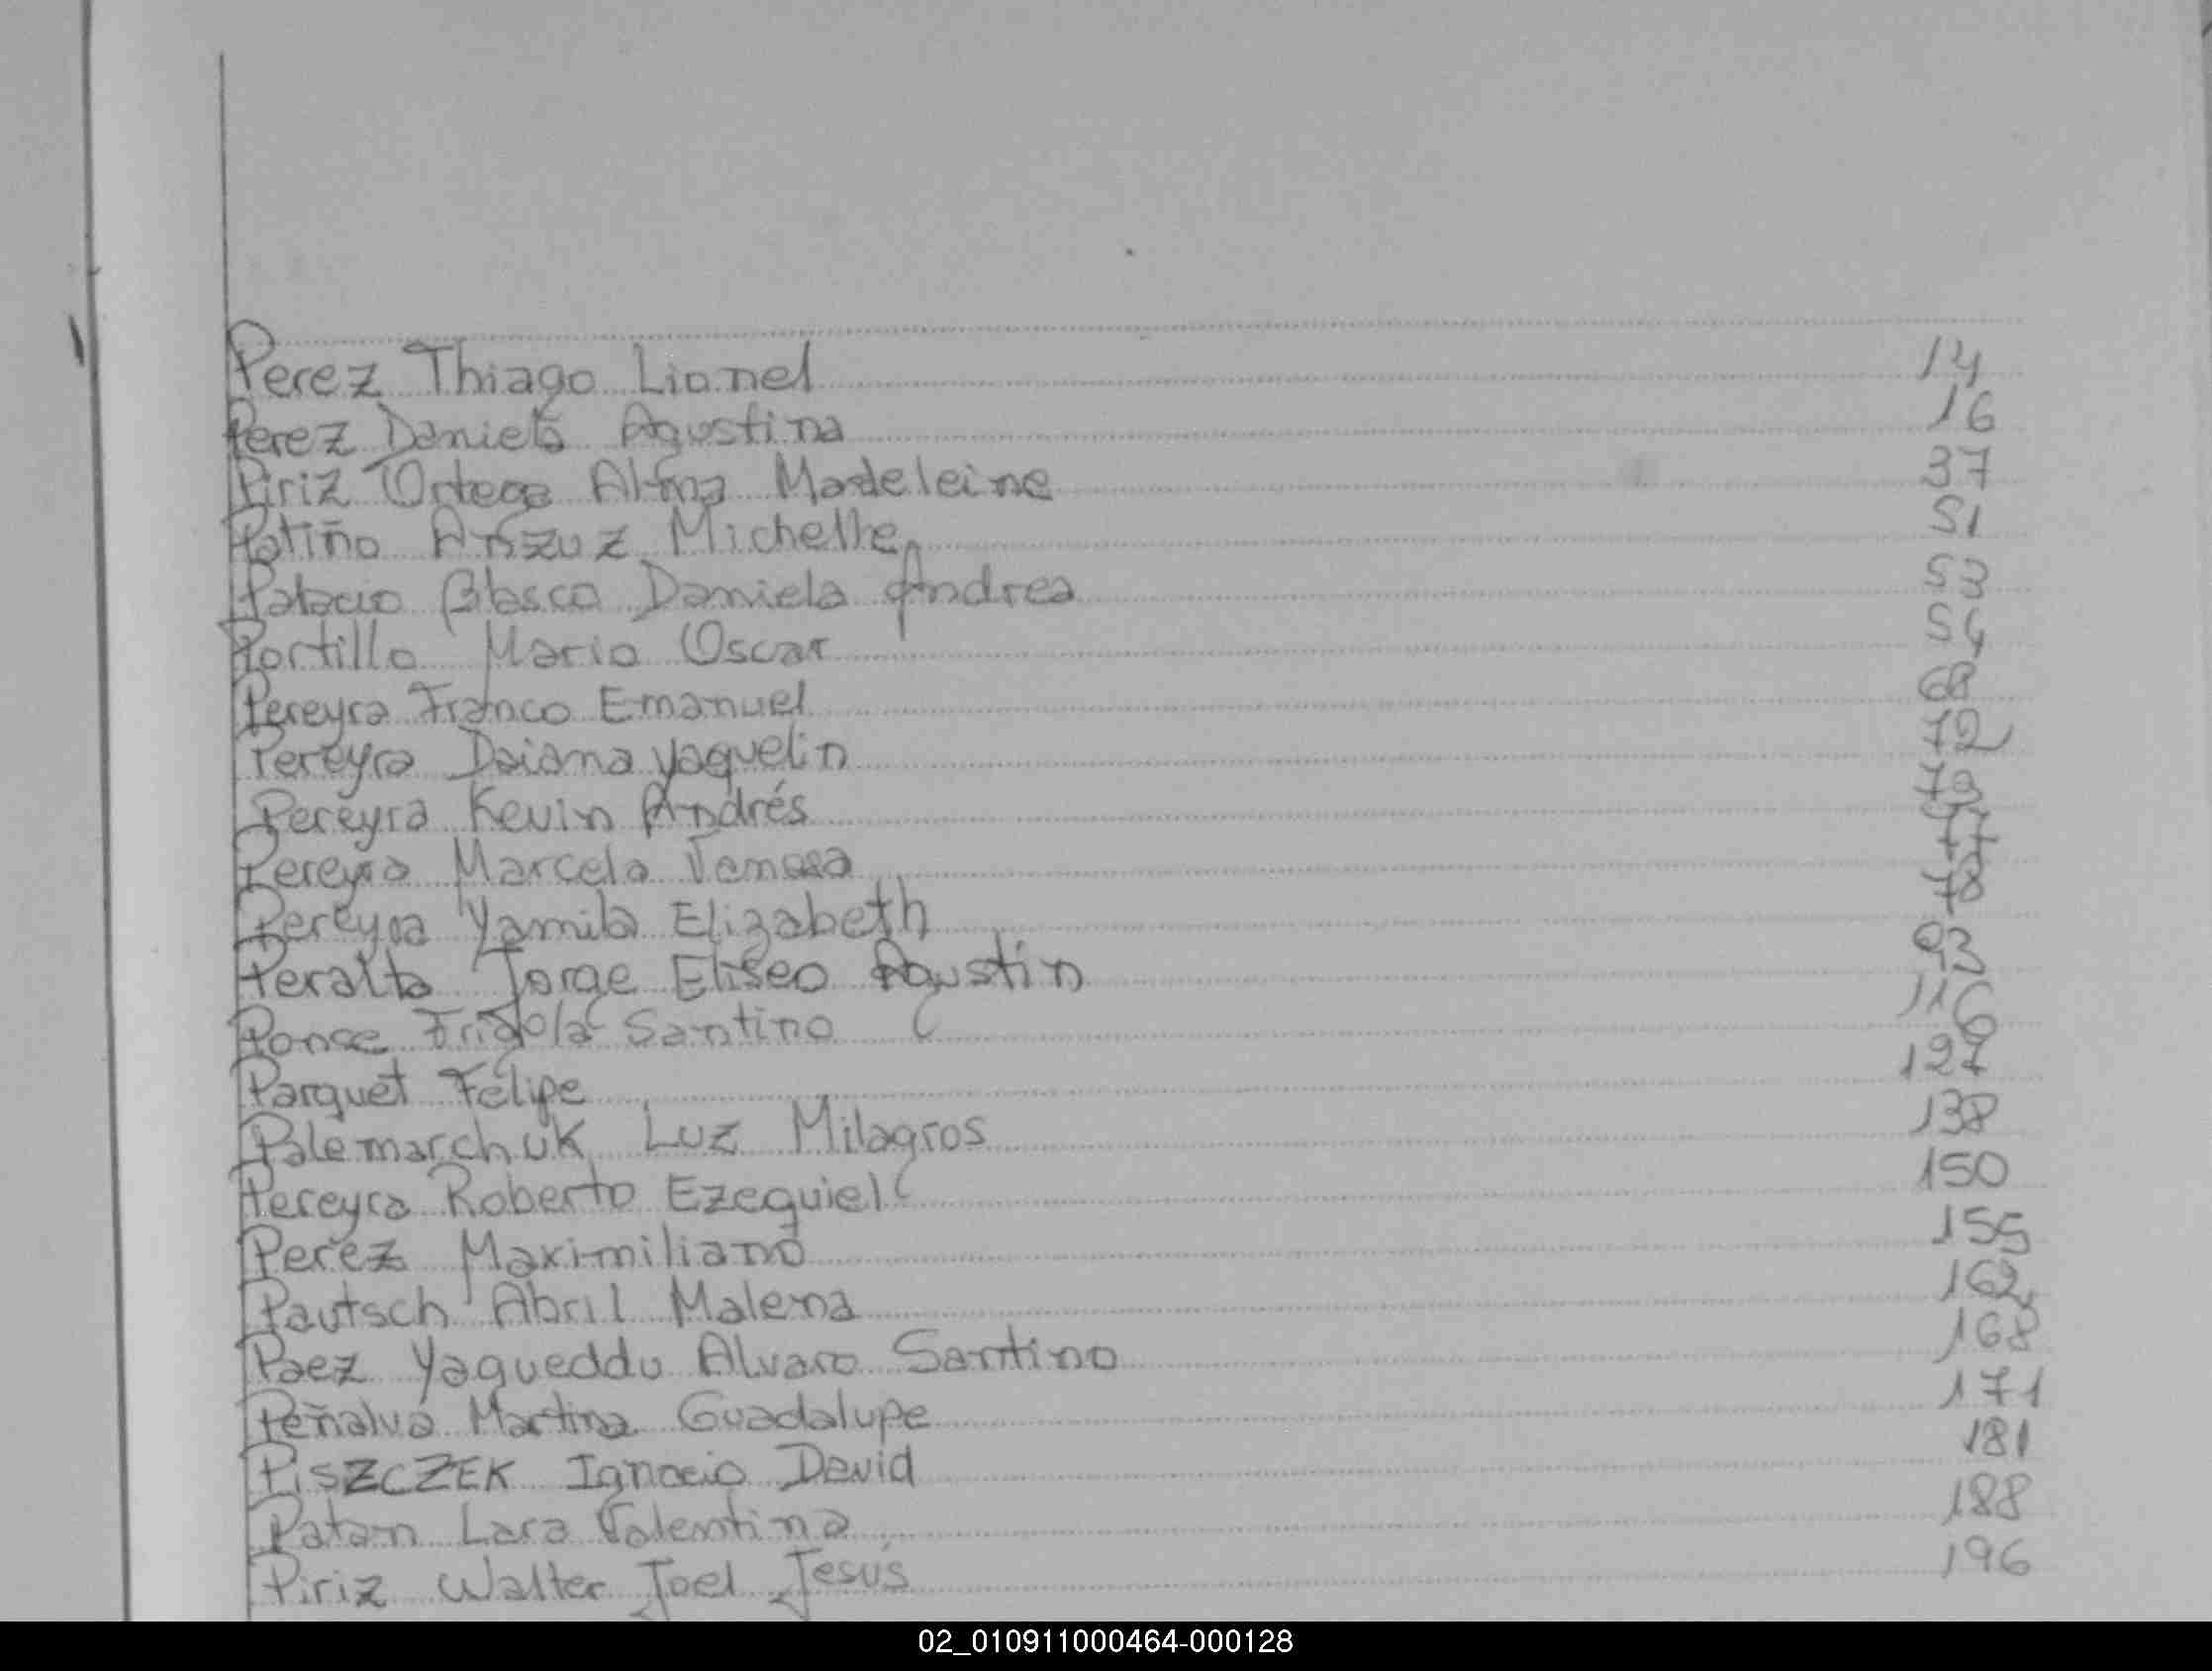 Perez Thiago Lionel 14
Perez Daniela Agustina 16
Piriz Ortega Alma Madeleine 37
Patiño Anzuz Michelle 51
Palacio Blasco Daniela Andrea 53
Portillo Mario Oscar 54
Pereyra Franco Emanuel 68
Pereyra Daiana Yaquelin 72
Pereyra Kevin Andrés 73
Pereyra Marcela 77
Pereyra Yamila Elizabeth 78
Peralta Jorge Eliseo Agustin 93
Ponce Frigola Santino 116
Parquet Felipe 127
Palemarchuk Luz Milagros 138
Pereyra Roberto Ezequiel 150
Perez Maximiliano 155
Pautsch Abril Malena 162
Paez Yaqueddu Alvaro Santino 168
Peñalva Martina Guadalupe 171
PISZCZEK Ignacio David 181
Patan Lara Valentina 188
Piriz Walter Joel Jesús 196
02_010911000464-000128